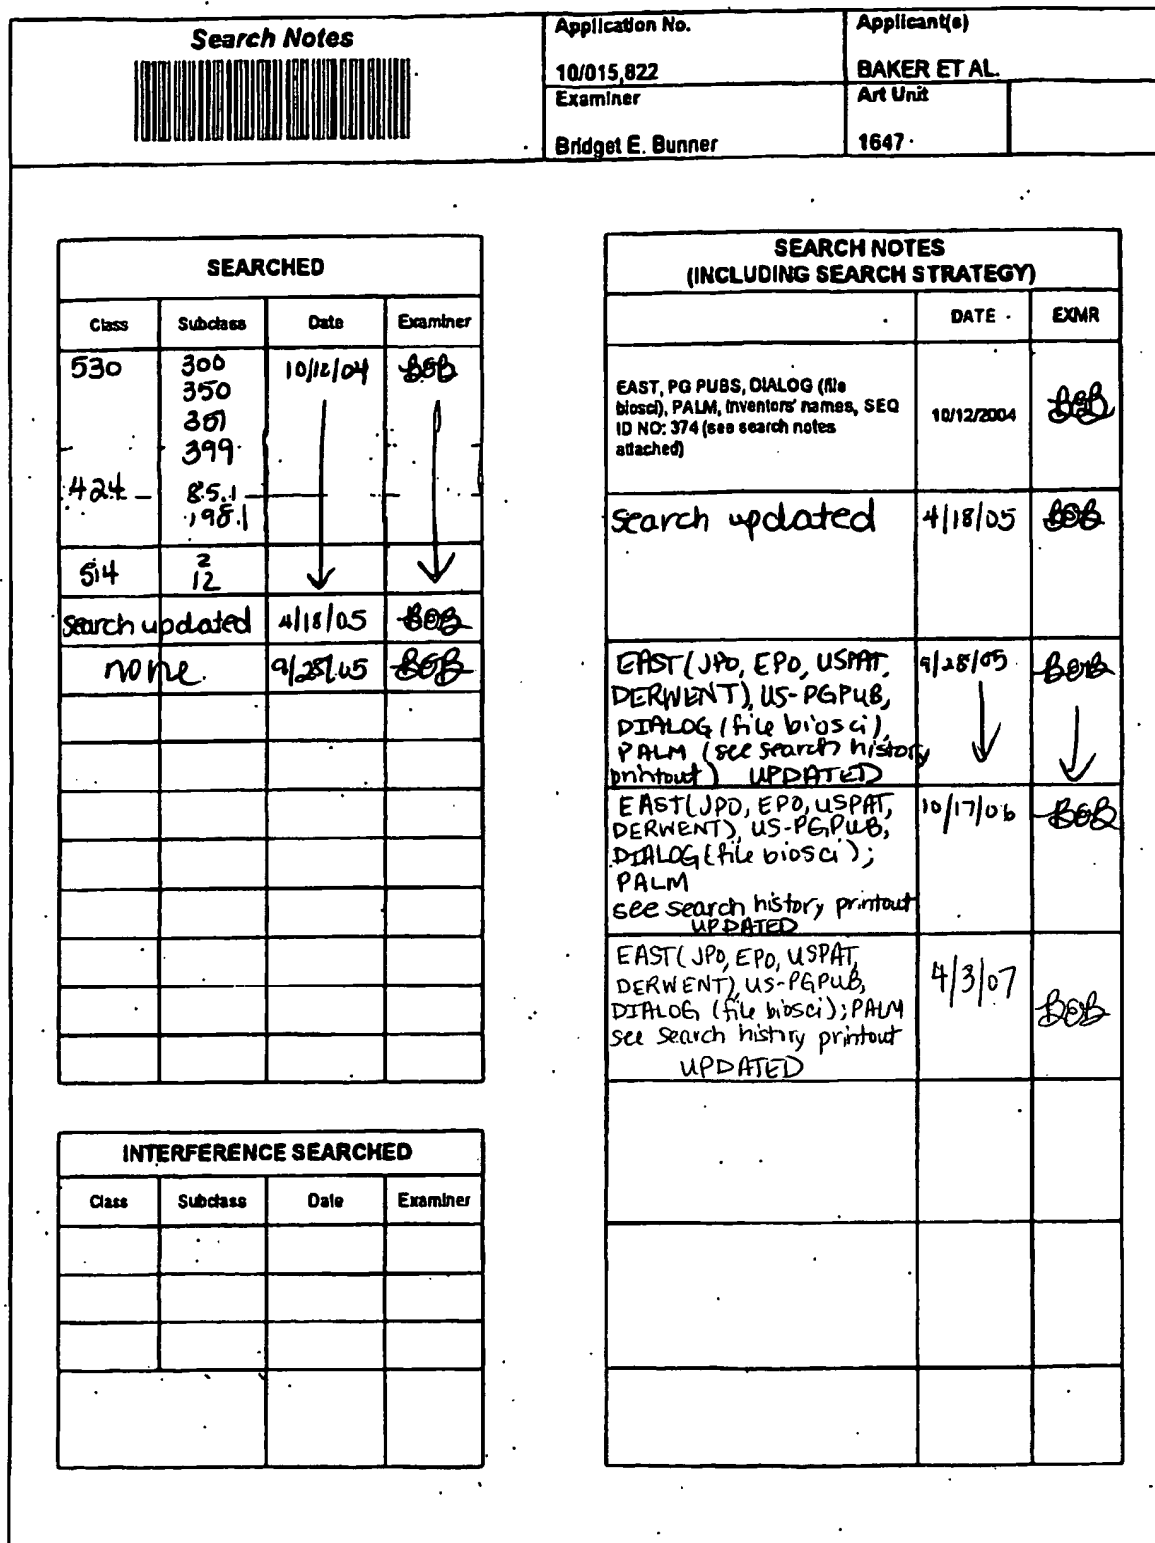 Search Notes
Application No.
10/015,822
Applicant(s)
BAKER ET AL.
Examiner
Bridget E. Bunner
Art Unit
1647
SEARCHED
Class Subclass Date Examiner
530 300 10/12/04 BEB
350
351
399
424 85.1
198.1
514 2
12
search updated 4/18/05 BEB
none. 9/28/05 BEB
INTERFERENCE SEARCHED
Class Subclass Date Examiner
SEARCH NOTES
(INCLUDING SEARCH STRATEGY)
DATE EXMR
EAST, PG PUBS, DIALOG (file
biosci), PALM, inventors' names, SEQ
ID NO: 374 (see search notes
attached)
10/12/2004 BEB
search updated 4/18/05 BEB
EAST (JPO, EPO, USPAT, 9/28/05 BEB
DERWENT), US-PGPUB,
DIALOG (file biosci),
PALM (see search history
printout) UPDATED
EAST (JPO, EPO, USPAT, 10/17/06 BEB
DERWENT), US-PGPUB,
DIALOG (file biosci);
PALM
see search history printout
UPDATED
EAST (JPO, EPO, USPAT, 4/3/07 BEB
DERWENT), US-PGPUB,
DIALOG (file biosci); PALM
see search history printout
UPDATED